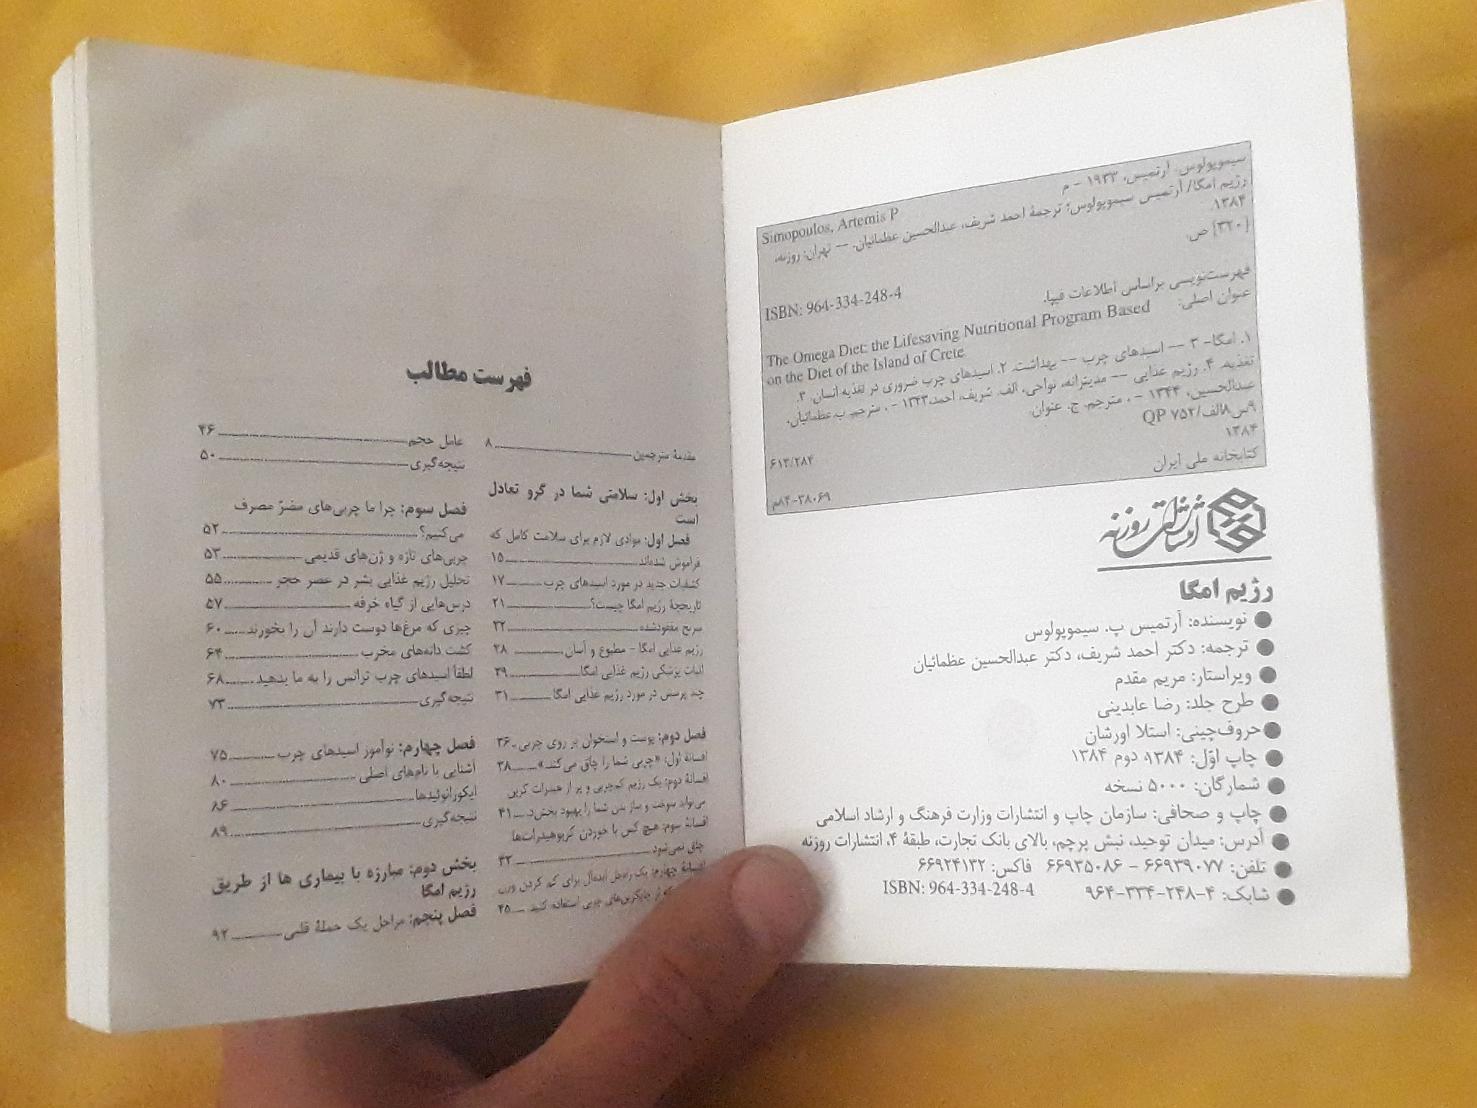 سیموپولوس، آرتمیس، ۱۹۳۳ - م
Simopoulos, Artemis P
رژیم امگا/ آرتمیس سیموپولوس؛ ترجمهٔ احمد شریف، عبدالحسین عظمائیان. -- تهران: روزنه،
۱۳۸۴.
[۳۲۰] ص.
ISBN: 964-334-248-4
فهرست‌نویسی براساس اطلاعات فیپا.
عنوان اصلی:
The Omega Diet: the Lifesaving Nutritional Program Based
on the Diet of the Island of Crete
۱. امگا- ۳ -- اسیدهای چرب -- بهداشت. ۲. اسیدهای چرب ضروری در تغذیه انسان. ۳.
تغذیه. ۴. رژیم غذایی -- مدیترانه، نواحی، الف. شریف، احمد، ۱۳۴۳ - ، مترجم. ب. عظمائیان،
عبدالحسین، ۱۳۴۴ - ، مترجم. ج. عنوان.
۹س۸الف/۷۵۲ QP
۱۳۸۴
۶۱۳/۲۸۴
کتابخانه ملی ایران
۸۴-۳۸۰۶۹م
انتشارات روزنه
رژیم امگا
● نویسنده: آرتمیس پ. سیموپولوس
● ترجمه: دکتر احمد شریف، دکتر عبدالحسین عظمائیان
● ویراستار: مریم مقدم
● طرح جلد: رضا عابدینی
● حروف‌چینی: استلا اورشان
● چاپ اوّل: ۱۳۸۴، دوم ۱۳۸۴
● شمارگان: ۵۰۰۰ نسخه
● چاپ و صحافی: سازمان چاپ و انتشارات وزارت فرهنگ و ارشاد اسلامی
● آدرس: میدان توحید، نبش پرچم، بالای بانک تجارت، طبقهٔ ۴، انتشارات روزنه
● تلفن: ۶۶۹۳۹۰۷۷ - ۶۶۹۳۵۰۸۶ فاکس: ۶۶۹۲۴۱۳۲
● شابک: ۴-۲۴۸-۳۳۴-۹۶۴ ISBN: 964-334-248-4
فهرست مطالب
مقدمهٔ مترجمین ۸
بخش اول: سلامتی شما در گرو تعادل
است
فصل اول: موادی لازم برای سلامت کامل که
فراموش شده‌اند ۱۵
کشفیات جدید در مورد اسیدهای چرب ۱۷
تاریخچهٔ رژیم امگا چیست؟ ۲۱
سریع مفقودشده ۲۲
رژیم غذایی امگا - مطبوع و آسان ۲۸
اثبات پزشکی رژیم غذایی امگا ۲۹
چند پرسش در مورد رژیم غذایی امگا ۳۱
فصل دوم: پوست و استخوان بر روی چربی ۳۶
افسانهٔ اول: «چربی شما را چاق می‌کند» ۳۸
افسانهٔ دوم: یک رژیم کم‌چربی و پر از هیدرات کربن
می‌تواند سوخت و ساز بدن شما را بهبود بخشد. ۴۱
افسانهٔ سوم: هیچ کس با خوردن کربوهیدرات‌ها
چاق نمی‌شود ۴۳
افسانهٔ چهارم: یک راه‌حل ایده‌آل برای کم کردن وزن
که از جایگزین‌های چربی استفاده کنید ۴۵
عامل حجم ۴۶
نتیجه‌گیری ۵۰
فصل سوم: چرا ما چربی‌های مضرّ مصرف
می‌کنیم؟ ۵۲
چربی‌های تازه و ژن‌های قدیمی ۵۳
تحلیل رژیم غذایی بشر در عصر حجر ۵۵
درس‌هایی از گیاه خرفه ۵۷
چیزی که مرغ‌ها دوست دارند آن را بخورند ۶۰
کشت دانه‌های مخرب ۶۴
لطفاً اسیدهای چرب ترانس را به ما بدهید ۶۸
نتیجه‌گیری ۷۳
فصل چهارم: نوآموز اسیدهای چرب ۷۵
آشنایی با نام‌های اصلی ۸۰
ایکوزانوئیدها ۸۶
نتیجه‌گیری ۸۹
بخش دوم: مبارزه با بیماری ها از طریق
رژیم امگا
فصل پنجم: مراحل یک حملهٔ قلبی ۹۲